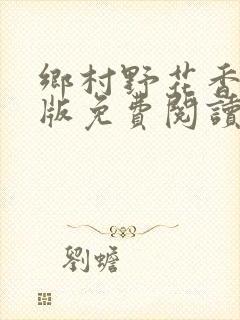 鄉村野花香
版免費閱讀
劉蟾